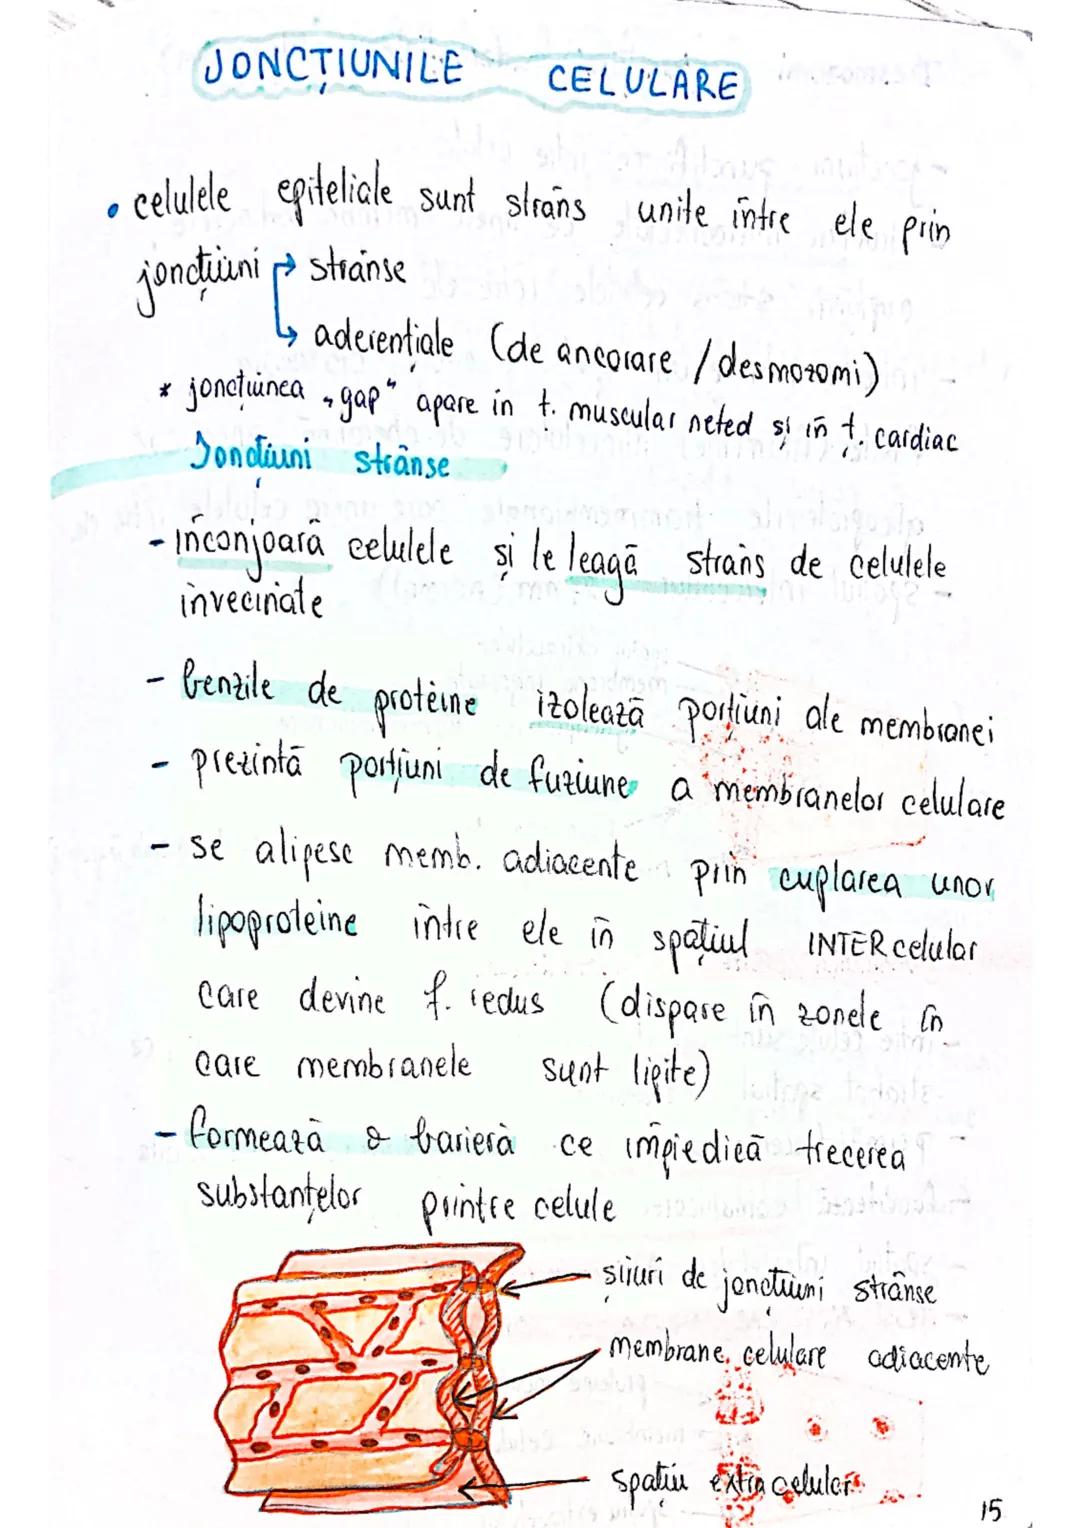 JONCȚIUNILE CELULARE
• celulele epiteliale sunt strâns unite între ele prin
joncțiuni → strânse
↳ aderențiale (de ancorare / desmozomi)
* joncțiunea „gap“ apare in ț. muscular neted și în ț. cardiac
Joncțiuni strânse
- înconjoară celulele și le leagă strâns de celulele
învecinate
- benzile de proteine izolează porțiuni ale membranei
- prezintă porțiuni de fuziune a membranelor celulare
- se alipesc memb. adiacente prin cuplarea unor
lipoproteine între ele în spațiul INTERcelular
care devine f. redus (dispare în zonele în
care membranele sunt lipite)
- formează o barieră ce împiedică trecerea
substanțelor printre celule
șiruri de joncțiuni strânse
membrane celulare adiacente
spațiu extracelular
15